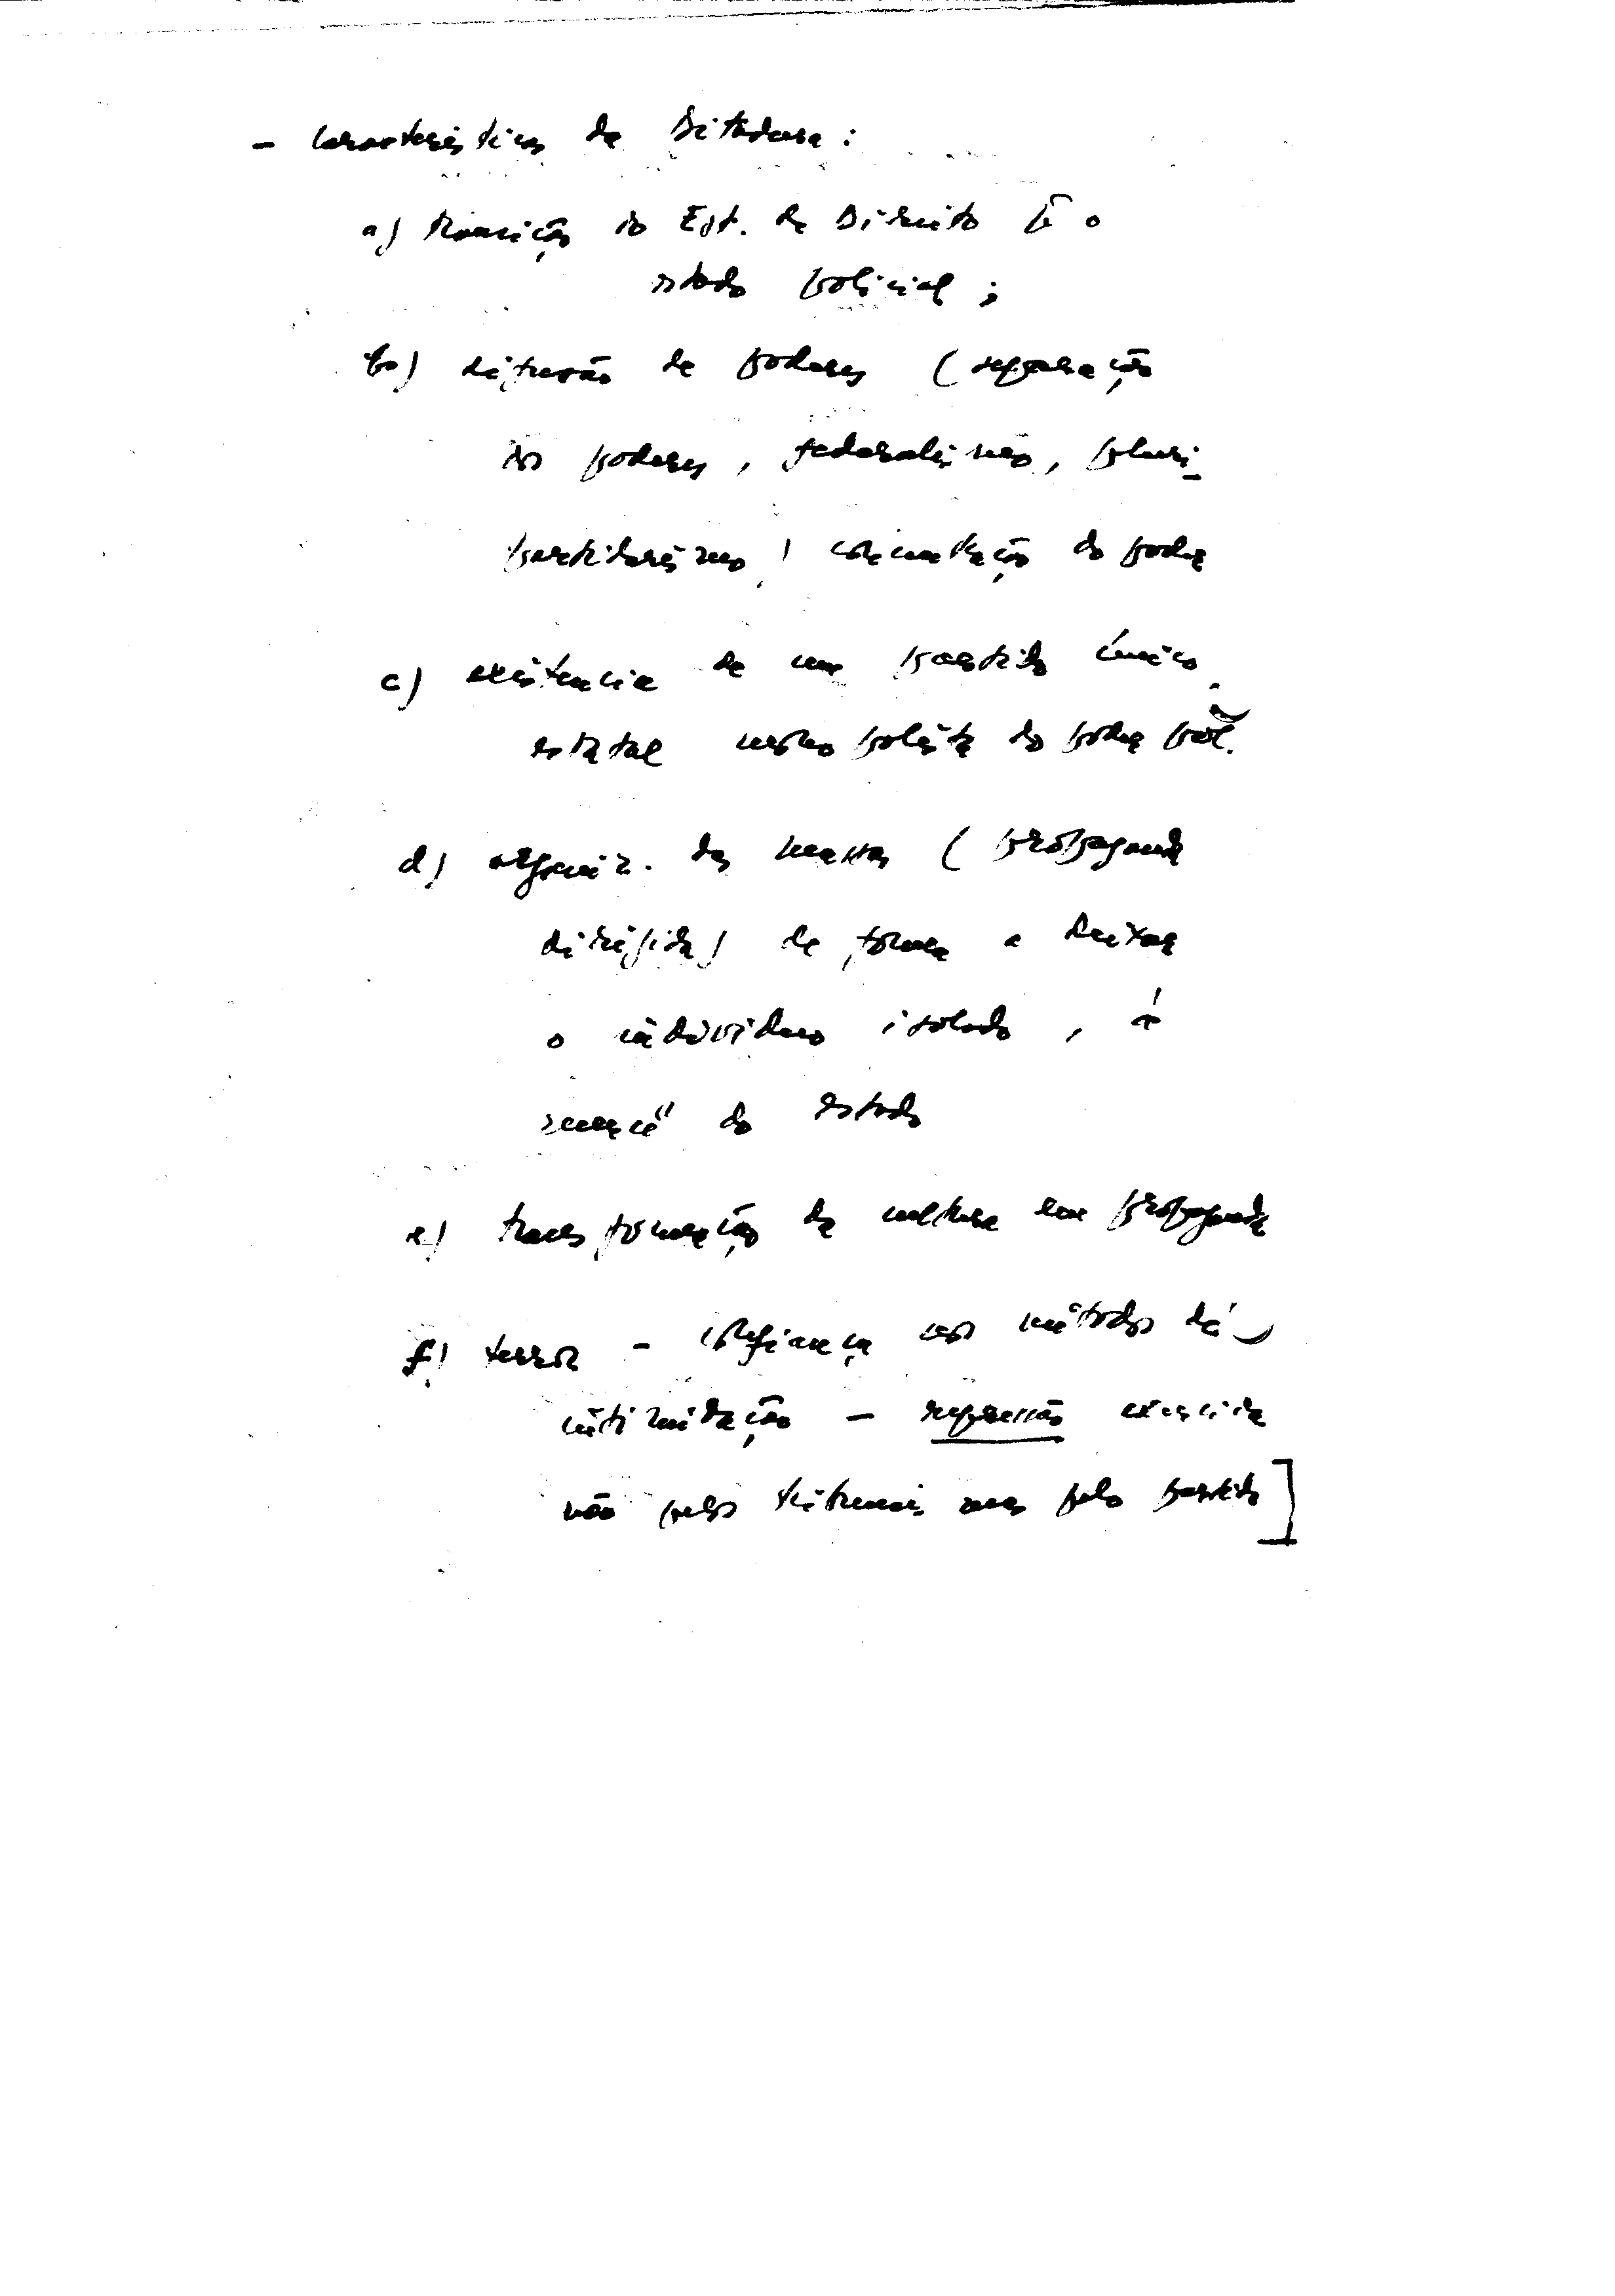 - Características da Ditadura:
a) transição do Est. de Direito p/ o
estado policial;
b) difusão de poderes (separação
dos poderes, federalismo, pluri-
partidarismo) concentração do poder
c) existencia de um partido único
estatal monopolista do poder pol.
d) organiz. das massas (propaganda
dirigida) de forma a deixar
o indivíduo isolado, à
mercê do Estado
e) transformação da cultura em propaganda
f) terror - confiança nos métodos de
intimidação - repressão exercida
não pelos tribunais mas pelo partido]